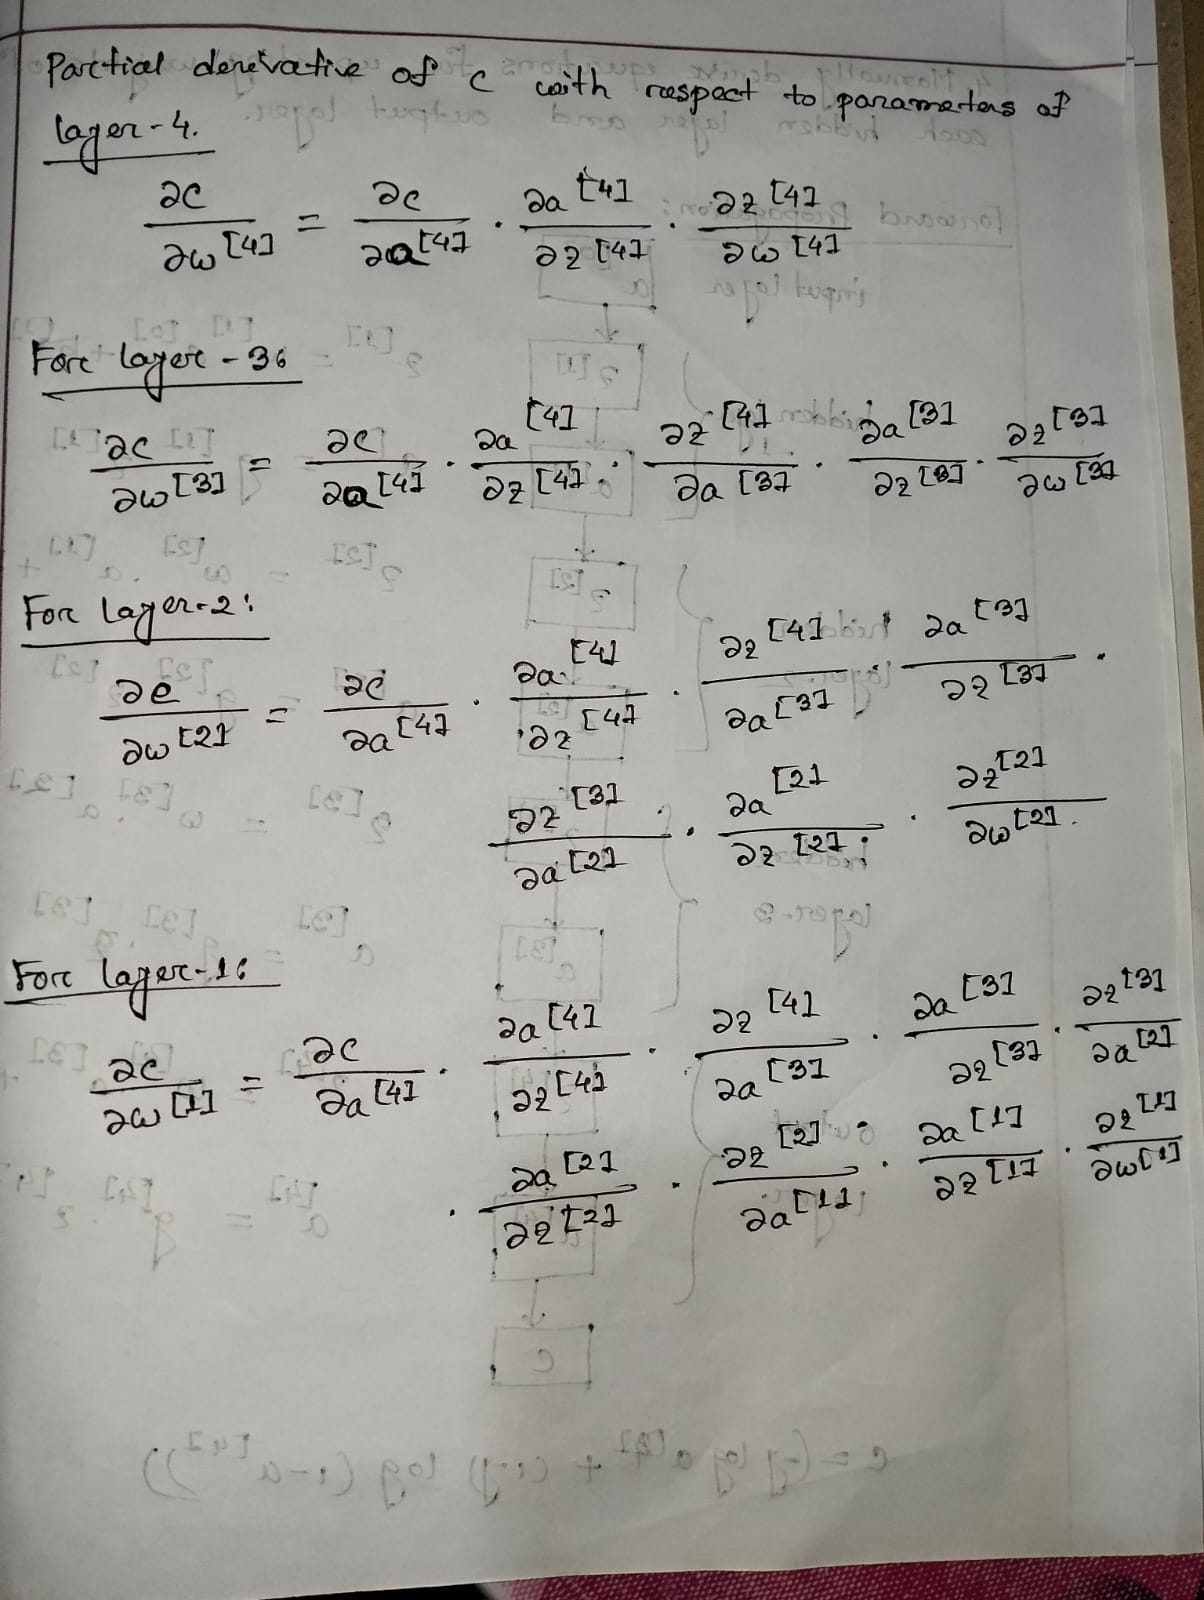 Partial derivative of c with respect to parameters of
layer-4.
∂c/∂w[4] = ∂c/∂a[4] · ∂a[4]/∂z[4] · ∂z[4]/∂w[4]
For layer-3:
∂c/∂w[3] = ∂c/∂a[4] · ∂a[4]/∂z[4] · ∂z[4]/∂a[3] · ∂a[3]/∂z[3] · ∂z[3]/∂w[3]
For layer-2:
∂c/∂w[2] = ∂c/∂a[4] · ∂a[4]/∂z[4] · ∂z[4]/∂a[3] · ∂a[3]/∂z[3] ·
∂z[3]/∂a[2] · ∂a[2]/∂z[2] · ∂z[2]/∂w[2]
For layer-1:
∂c/∂w[1] = ∂c/∂a[4] · ∂a[4]/∂z[4] · ∂z[4]/∂a[3] · ∂a[3]/∂z[3] · ∂z[3]/∂a[2]
· ∂a[2]/∂z[2] · ∂z[2]/∂a[1] · ∂a[1]/∂z[1] · ∂z[1]/∂w[1]